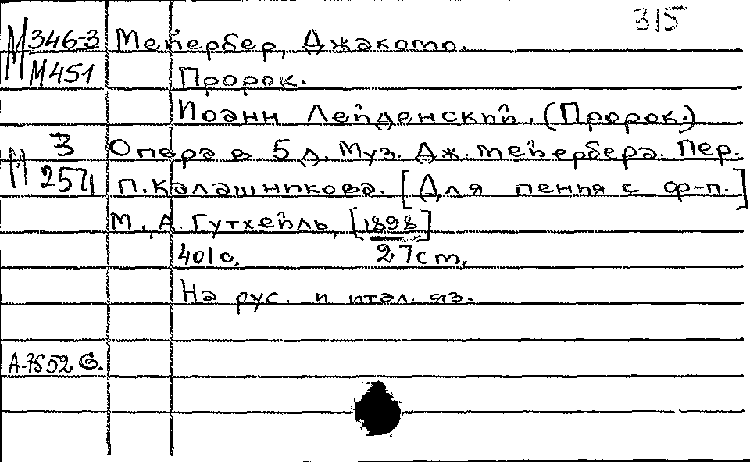 315
М 346-3 Мейербер, Джакомо.
М451 Пророк.
Иоанн Лейденский. (Пророк.)
М 3 Опера в 5 д. Муз. Дж. Мейербера. Пер.
257 П. Калашникова. [Для пения с ф-п.]
М., А. Гутхейль, [1898]
401 с. 27 см.
На рус. и итал. яз.
А-7552 б.